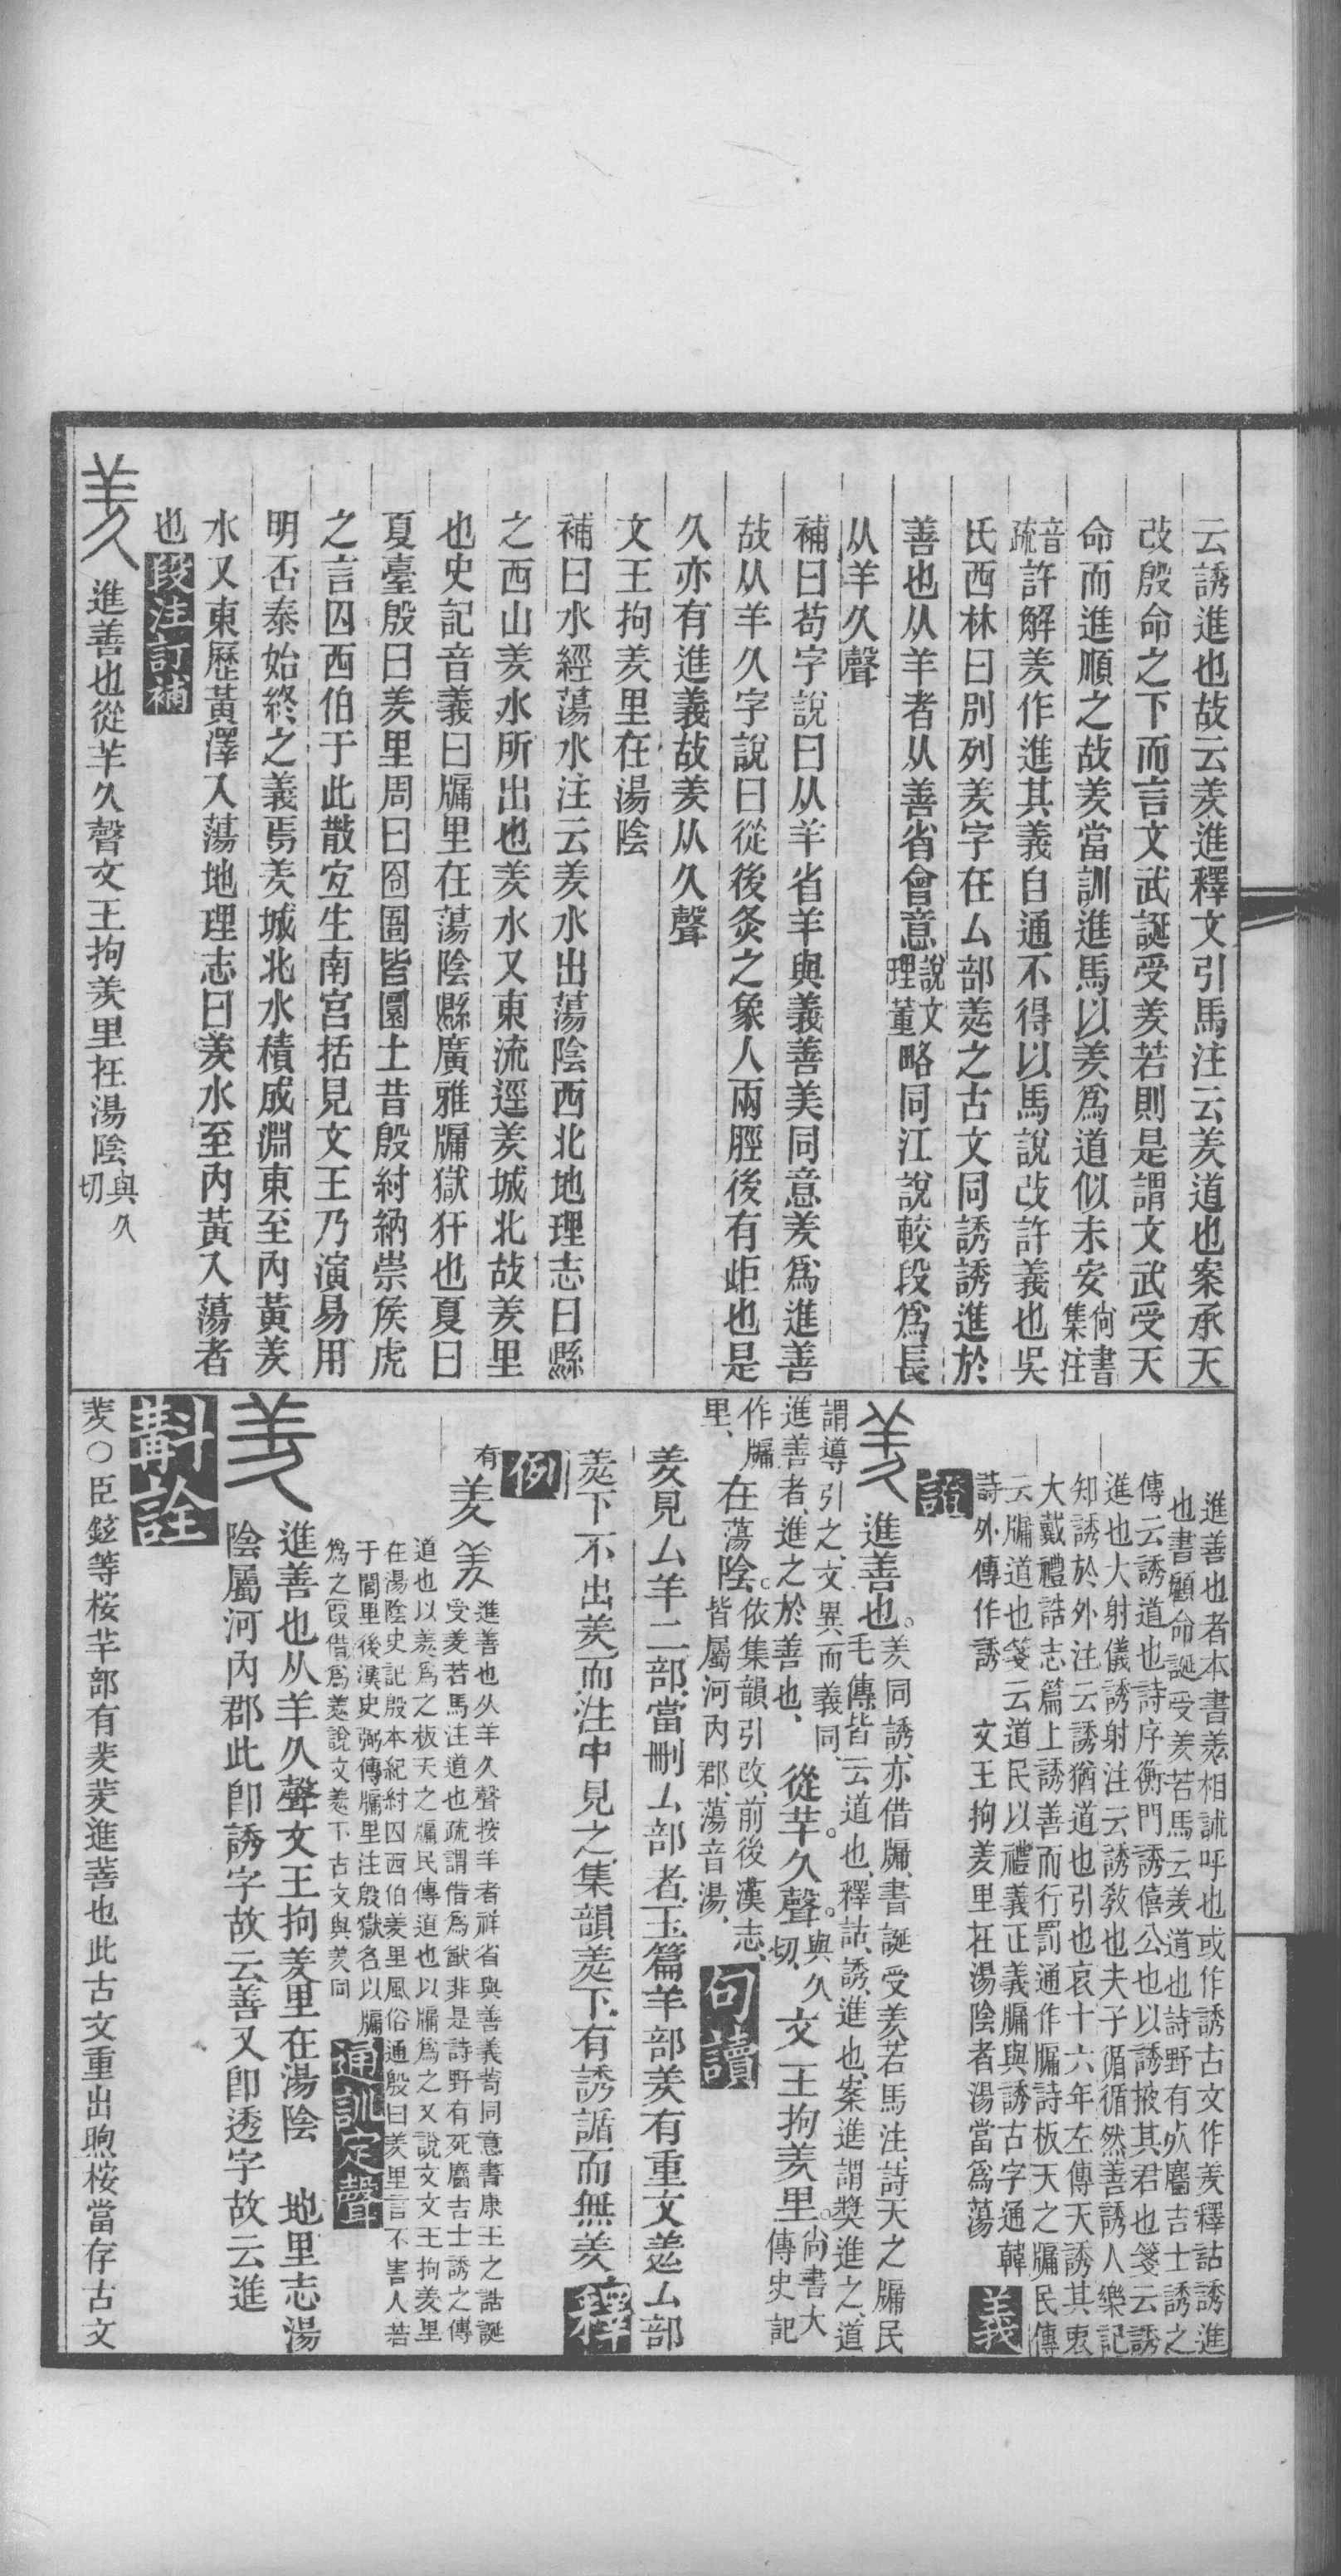 云誘進也故云羑進釋文引馬注云羑道也案承天
改殷命之下而言文武誕受羑若則是謂文武受天
命而進順之故羑當訓進馬以羑爲道似未安尙書集注
音疏許解羑作進其義自通不得以馬說改許義也吳
氏西林曰別列羑字在厶部羑之古文同誘誘進於
善也从羊者从善省會意說文理董略同江說較段爲長
从羊久聲
補曰苟字說曰从羊省羊與義善美同意羑爲進善
故从羊久字說曰從後灸之象人兩脛後有歫也是
久亦有進義故羑从久聲
文王拘羑里在湯陰
補曰水經蕩水注云羑水出蕩陰西北地理志曰縣
之西山羑水所出也羑水又東流逕羑城北故羑里
也史記音義曰牖里在蕩陰縣廣雅牖獄犴也夏曰
夏臺殷曰羑里周曰囹圄皆圜土昔殷紂納崇侯虎
之言囚西伯于此散宜生南宮括見文王乃演易用
明否泰始終之義焉羑城北水積成淵東至內黃羑
水又東歷黃澤入蕩地理志曰羑水至內黃入蕩者
也 段注訂補
羑 進善也從羊久聲文王拘羑里在湯陰與久切
進善也者本書羑相訹呼也或作誘古文作羑釋詁誘進
也書顧命誕受羑若馬云羑道也詩野有死麕吉士誘之
傳云誘道也詩序衡門誘僖公也以誘掖其君也箋云誘
進也大射儀誘射注云誘敎也夫子循循然善誘人樂記
知誘於外注云誘猶道也引也哀十六年左傳天誘其衷
大戴禮誥志篇上誘善而行罰通作牖詩板天之牖民傳
云牖道也箋云道民以禮義正義牖與誘古字通韓
詩外傳作誘 文王拘羑里在湯陰者湯當爲蕩 義
證
羑 進善也。羑同誘、亦借牖、書誕受羑若馬注、詩天之牖民
毛傳皆云道也、釋詁、誘、進也、案進謂獎進之、道
謂導引之、文異而義同、
進善者、進之於善也、 從羊。久聲。與久切、文王拘羑里。尙書大傳史記
作牖里、在蕩陰。依集韻引改、前後漢志、皆屬河內郡、蕩音湯、 句讀
羑見厶羊二部、當刪厶部者、玉篇羊部羑有重文羑、厶部
羑下不出羑、而注中見之、集韻羑下、有誘䛻而無羑 釋
例
有羑 羑 進善也从羊久聲按羊者祥省與善義苟同意書康王之誥誕
受羑若馬注道也疏謂借爲猷非是詩野有死麕吉士誘之傳
道也以羑爲之板天之牖民傳道也以牖爲之又說文文王拘羑里
在湯陰史記殷本紀紂囚西伯羑里風俗通殷曰羑里言不害人若
于閭里後漢史弼傳牖里注殷獄名以牖
爲之叚借爲羑說文羑下古文與羑同 通訓定聲
羑 進善也从羊久聲文王拘羑里在湯陰 地里志湯
陰屬河內郡此卽誘字故云善又卽透字故云進
斠詮
羑○臣鉉等桉羊部有羑羑進善也此古文重出煦桉當存古文